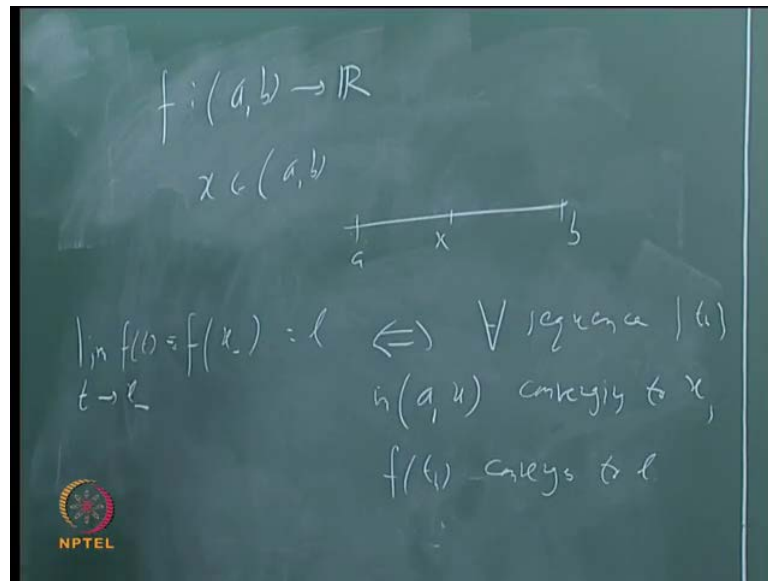 f : (a, b) → ℝ
x ∈ (a, b)
a x b
lim f(t) = f(x₋) = l ⇔ ∀ sequence
t → x₋
in (a, x) converging to x,
f(tₙ) converges to l
NPTEL